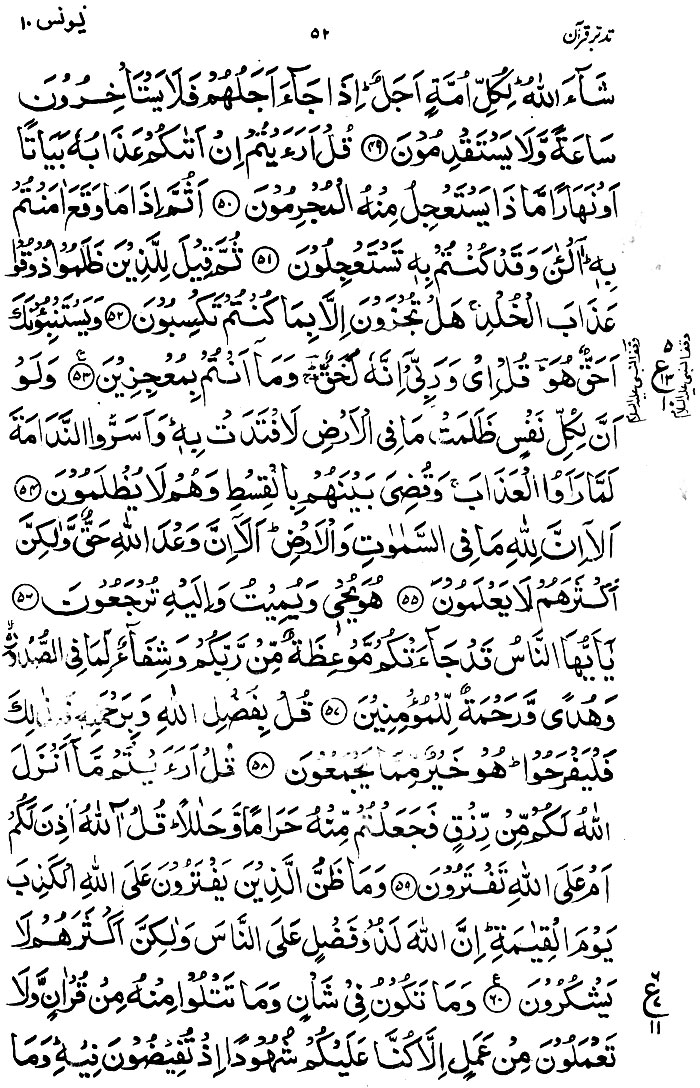 تدبر قرآن ۵۲ یونس ۱۰
شَآءَ اللّٰهُ ؕ لِكُلِّ اُمَّةٍ اَجَلٌ ؕ اِذَا جَآءَ اَجَلُهُمْ فَلَا يَسْتَاْخِرُوْنَ
سَاعَةً وَّلَا يَسْتَقْدِمُوْنَ ﴿۴۹﴾ قُلْ اَرَءَيْتُمْ اِنْ اَتٰىكُمْ عَذَابُهٗ بَيَاتًا
اَوْ نَهَارًا مَّا ذَا يَسْتَعْجِلُ مِنْهُ الْمُجْرِمُوْنَ ﴿۵۰﴾ اَثُمَّ اِذَا مَا وَقَعَ اٰمَنْتُمْ
بِهٖ ؕ آٰلْـٰٔنَ وَقَدْ كُنْتُمْ بِهٖ تَسْتَعْجِلُوْنَ ﴿۵۱﴾ ثُمَّ قِيْلَ لِلَّذِيْنَ ظَلَمُوْا ذُوْقُوْا
عَذَابَ الْخُلْدِ ۚ هَلْ تُجْزَوْنَ اِلَّا بِمَا كُنْتُمْ تَكْسِبُوْنَ ﴿۵۲﴾ وَيَسْتَنْۢبِـُٔوْنَكَ
اَحَقٌّ هُوَ ؔ قُلْ اِيْ وَرَبِّيْٓ اِنَّهٗ لَحَقٌّ ؔ وَمَآ اَنْتُمْ بِمُعْجِزِيْنَ ﴿۵۳﴾ وَلَوْ
اَنَّ لِكُلِّ نَفْسٍ ظَلَمَتْ مَا فِي الْاَرْضِ لَافْتَدَتْ بِهٖ ؕ وَاَسَرُّوا النَّدَامَةَ
لَمَّا رَاَوُا الْعَذَابَ ۚ وَقُضِيَ بَيْنَهُمْ بِالْقِسْطِ وَهُمْ لَا يُظْلَمُوْنَ ﴿۵۴﴾
اَلَآ اِنَّ لِلّٰهِ مَا فِي السَّمٰوٰتِ وَالْاَرْضِ ؕ اَلَآ اِنَّ وَعْدَ اللّٰهِ حَقٌّ وَّلٰكِنَّ
اَكْثَرَهُمْ لَا يَعْلَمُوْنَ ﴿۵۵﴾ هُوَ يُحْيٖ وَيُمِيْتُ وَاِلَيْهِ تُرْجَعُوْنَ ﴿۵۶﴾
يٰٓاَيُّهَا النَّاسُ قَدْ جَآءَتْكُمْ مَّوْعِظَةٌ مِّنْ رَّبِّكُمْ وَشِفَآءٌ لِّمَا فِي الصُّدُوْرِ
وَهُدًى وَّرَحْمَةٌ لِّلْمُؤْمِنِيْنَ ﴿۵۷﴾ قُلْ بِفَضْلِ اللّٰهِ وَبِرَحْمَتِهٖ فَبِذٰلِكَ
فَلْيَفْرَحُوْا ؕ هُوَ خَيْرٌ مِّمَّا يَجْمَعُوْنَ ﴿۵۸﴾ قُلْ اَرَءَيْتُمْ مَّآ اَنْزَلَ
اللّٰهُ لَكُمْ مِّنْ رِّزْقٍ فَجَعَلْتُمْ مِّنْهُ حَرَامًا وَّحَلٰلًا ؕ قُلْ آٰللّٰهُ اَذِنَ لَكُمْ
اَمْ عَلَى اللّٰهِ تَفْتَرُوْنَ ﴿۵۹﴾ وَمَا ظَنُّ الَّذِيْنَ يَفْتَرُوْنَ عَلَى اللّٰهِ الْكَذِبَ
يَوْمَ الْقِيٰمَةِ ؕ اِنَّ اللّٰهَ لَذُوْ فَضْلٍ عَلَى النَّاسِ وَلٰكِنَّ اَكْثَرَهُمْ لَا
يَشْكُرُوْنَ ﴿۶۰﴾ وَمَا تَكُوْنُ فِيْ شَاْنٍ وَّمَا تَتْلُوْا مِنْهُ مِنْ قُرْاٰنٍ وَّلَا
تَعْمَلُوْنَ مِنْ عَمَلٍ اِلَّا كُنَّا عَلَيْكُمْ شُهُوْدًا اِذْ تُفِيْضُوْنَ فِيْهِ ؕ وَمَا
ع
۱۱